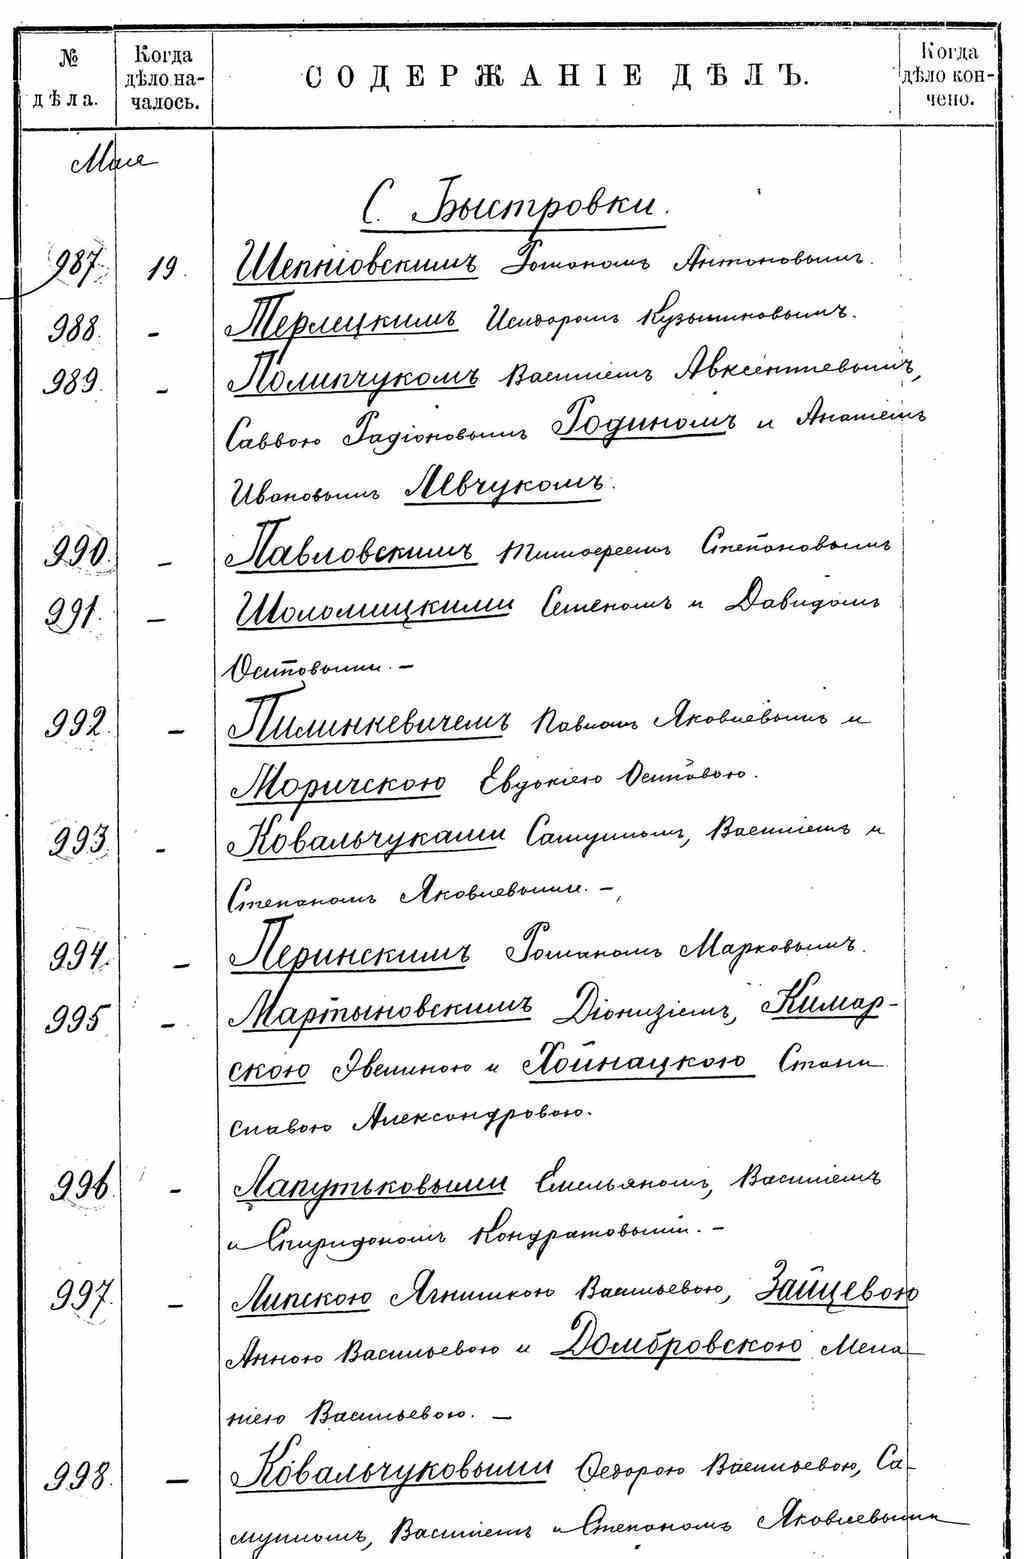 № дѣла.
Когда дѣло началось.
СОДЕРЖАНІЕ ДѢЛЪ.
Когда дѣло кончено.
Мая
С. Быстровки.
987 19. Шепніовскимъ Романомъ Антоновымъ.
988. - Терлецкимъ Исидоромъ Кузьминовымъ.
989. - Полипчукомъ Василіемъ Авксентіевымъ,
Саввою Радіоновымъ Родиномъ и Ананіемъ
Ивановымъ Левчукомъ.
990. - Павловскимъ Тимофеемъ Степановымъ
991. - Шоломицкими Семеномъ и Давидомъ
Осиповыми. -
992. - Пилинкевичемъ Павломъ Яковлевымъ и
Моричскою Евдокіею Осиповою.
993. - Ковальчуками Самуиломъ, Василіемъ и
Степаномъ Яковлевыми. -
994. - Перинскимъ Романомъ Марковымъ.
995 - Мартыновскимъ Діонизіемъ, Кимар-
скою Эвелиною и Хойнацкою Стани
славою Александровою.
996. - Лапутьковыми Емельяномъ, Василіемъ
и Спиридономъ Кондратовыми. -
997. - Липскою Ягнишкою Васильевою, Зайцевою
Анною Васильевою и Домбровскою Мела
ніею Васильевою. -
998. - Ковальчуковыми Федорою Васильевою, Са-
муиломъ, Василіемъ и Степаномъ Яковлевыми